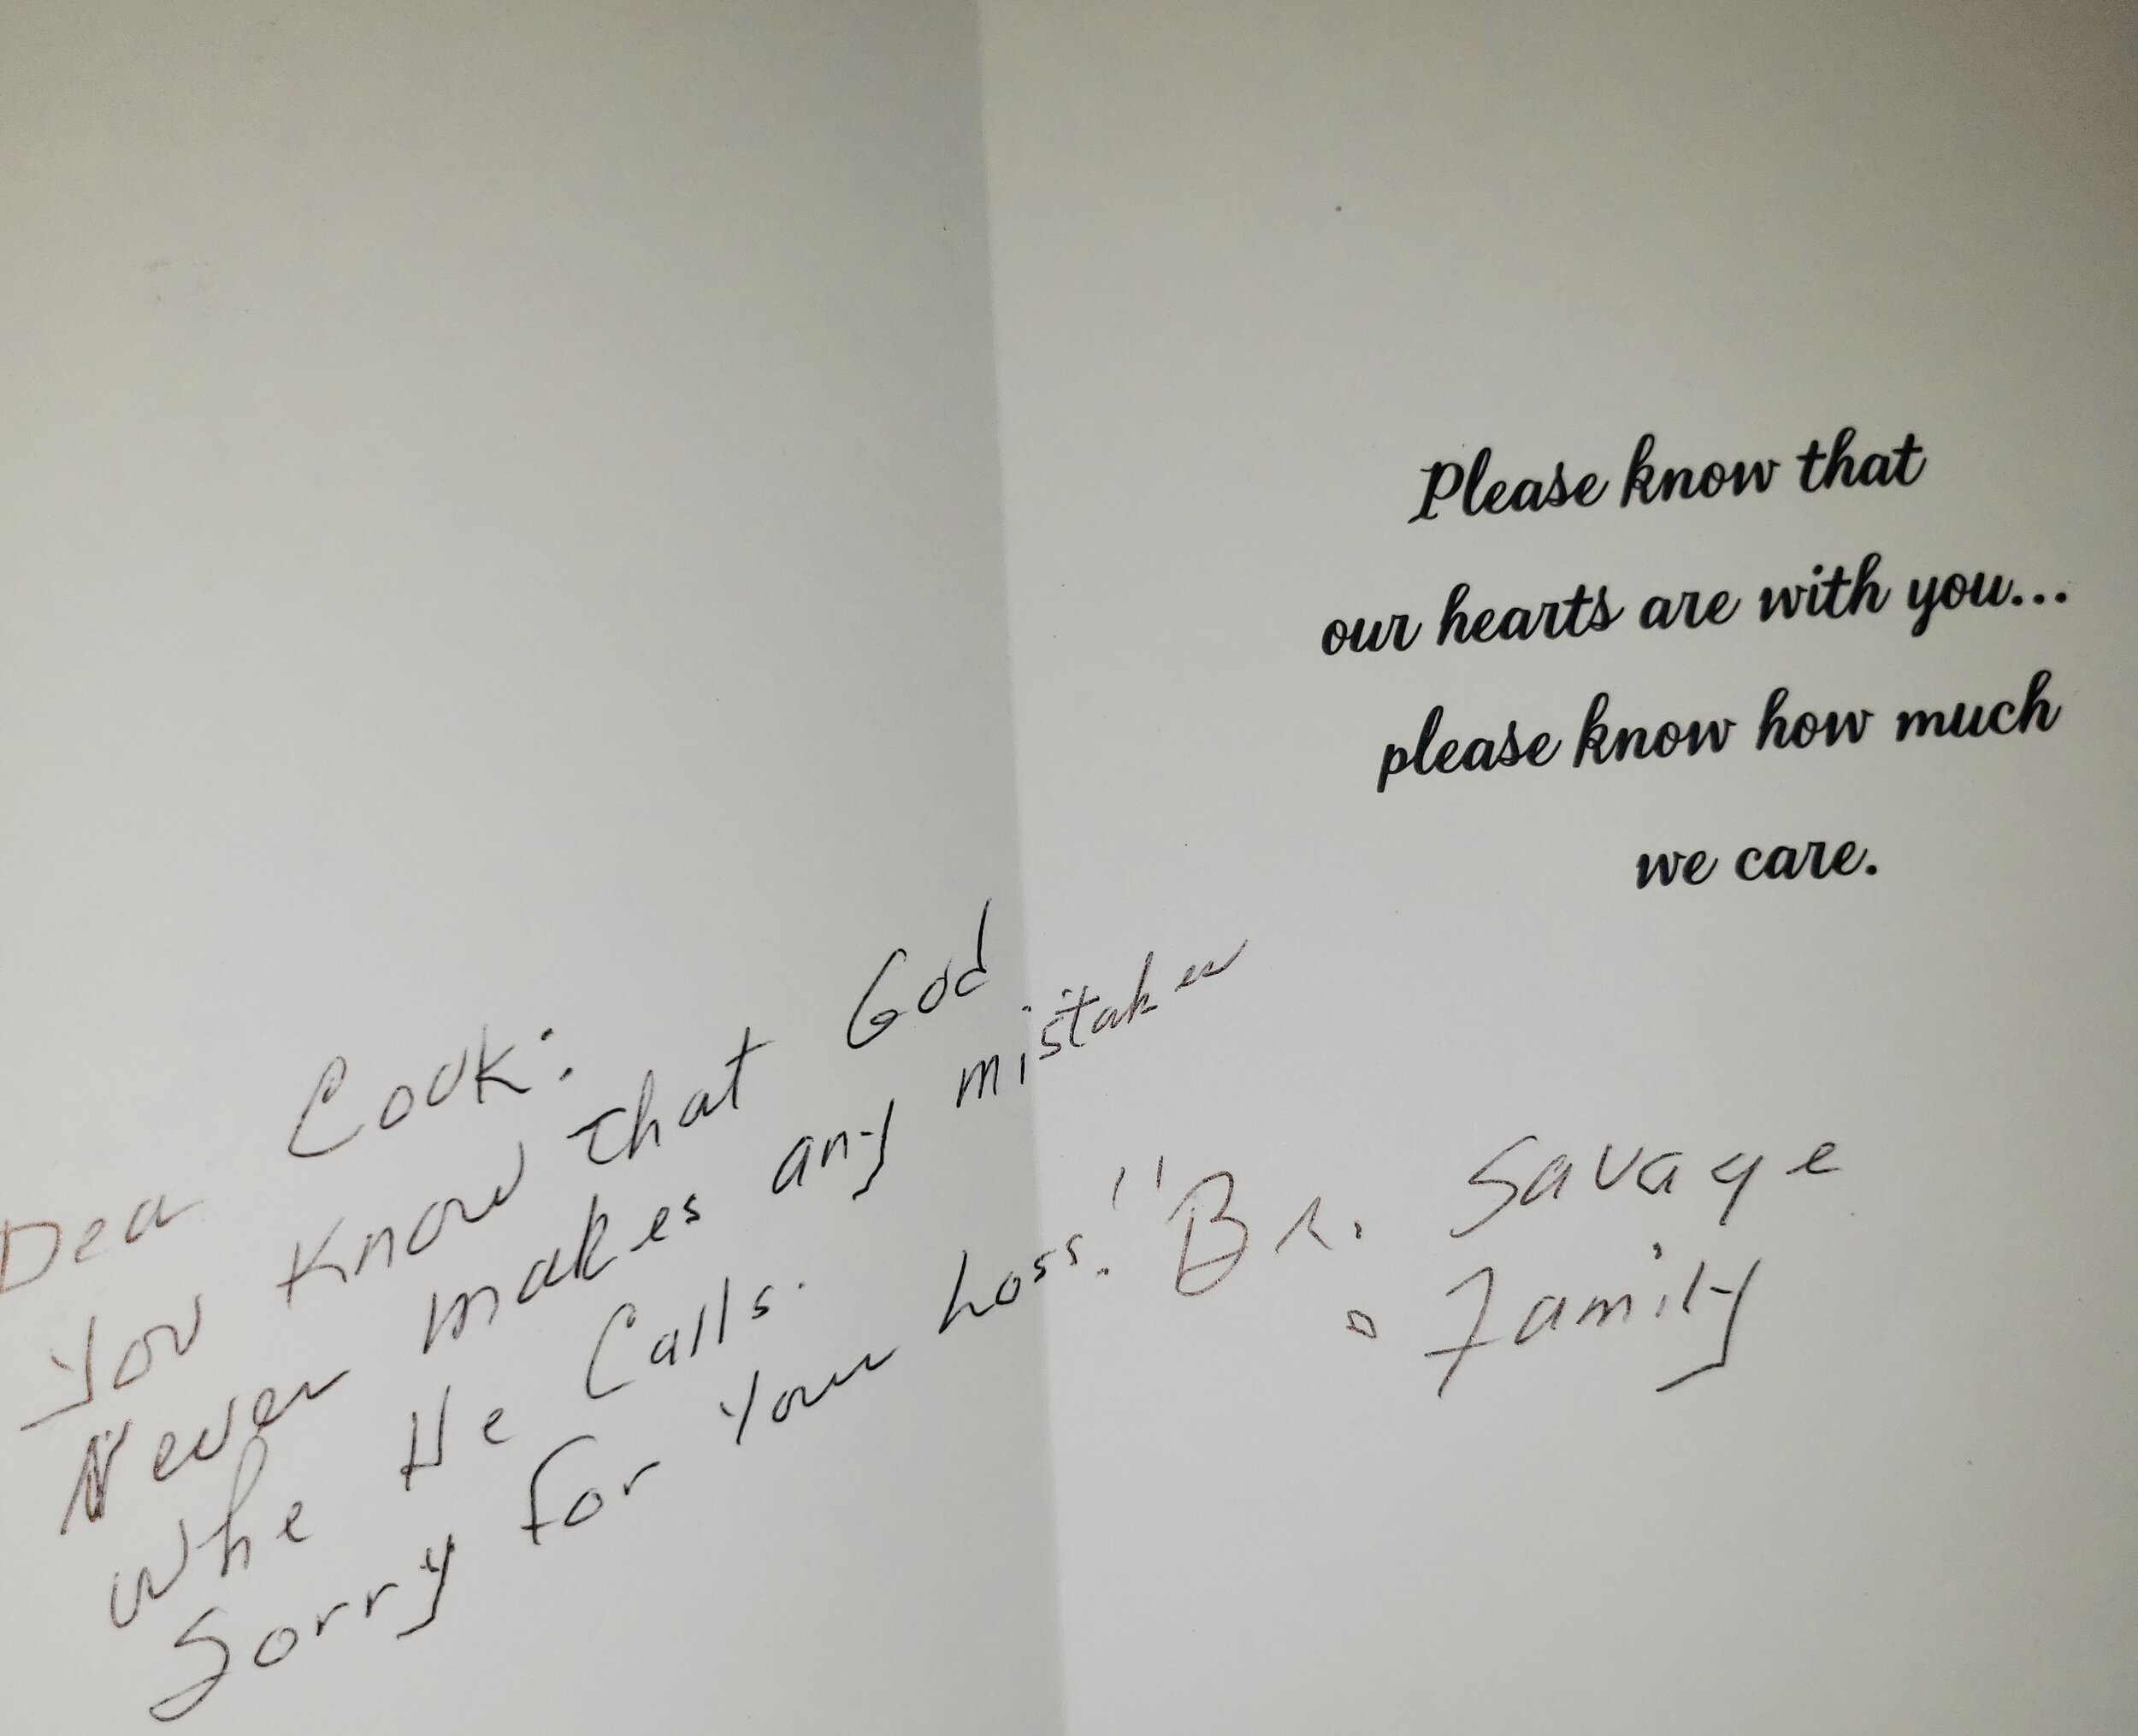 Dea Cook:
You Know that God
Never makes any mistakes
Whe He Calls.
Sorry for your Loss.!!
Please know that
our hearts are with you...
please know how much
we care.
Br. Savage
Family